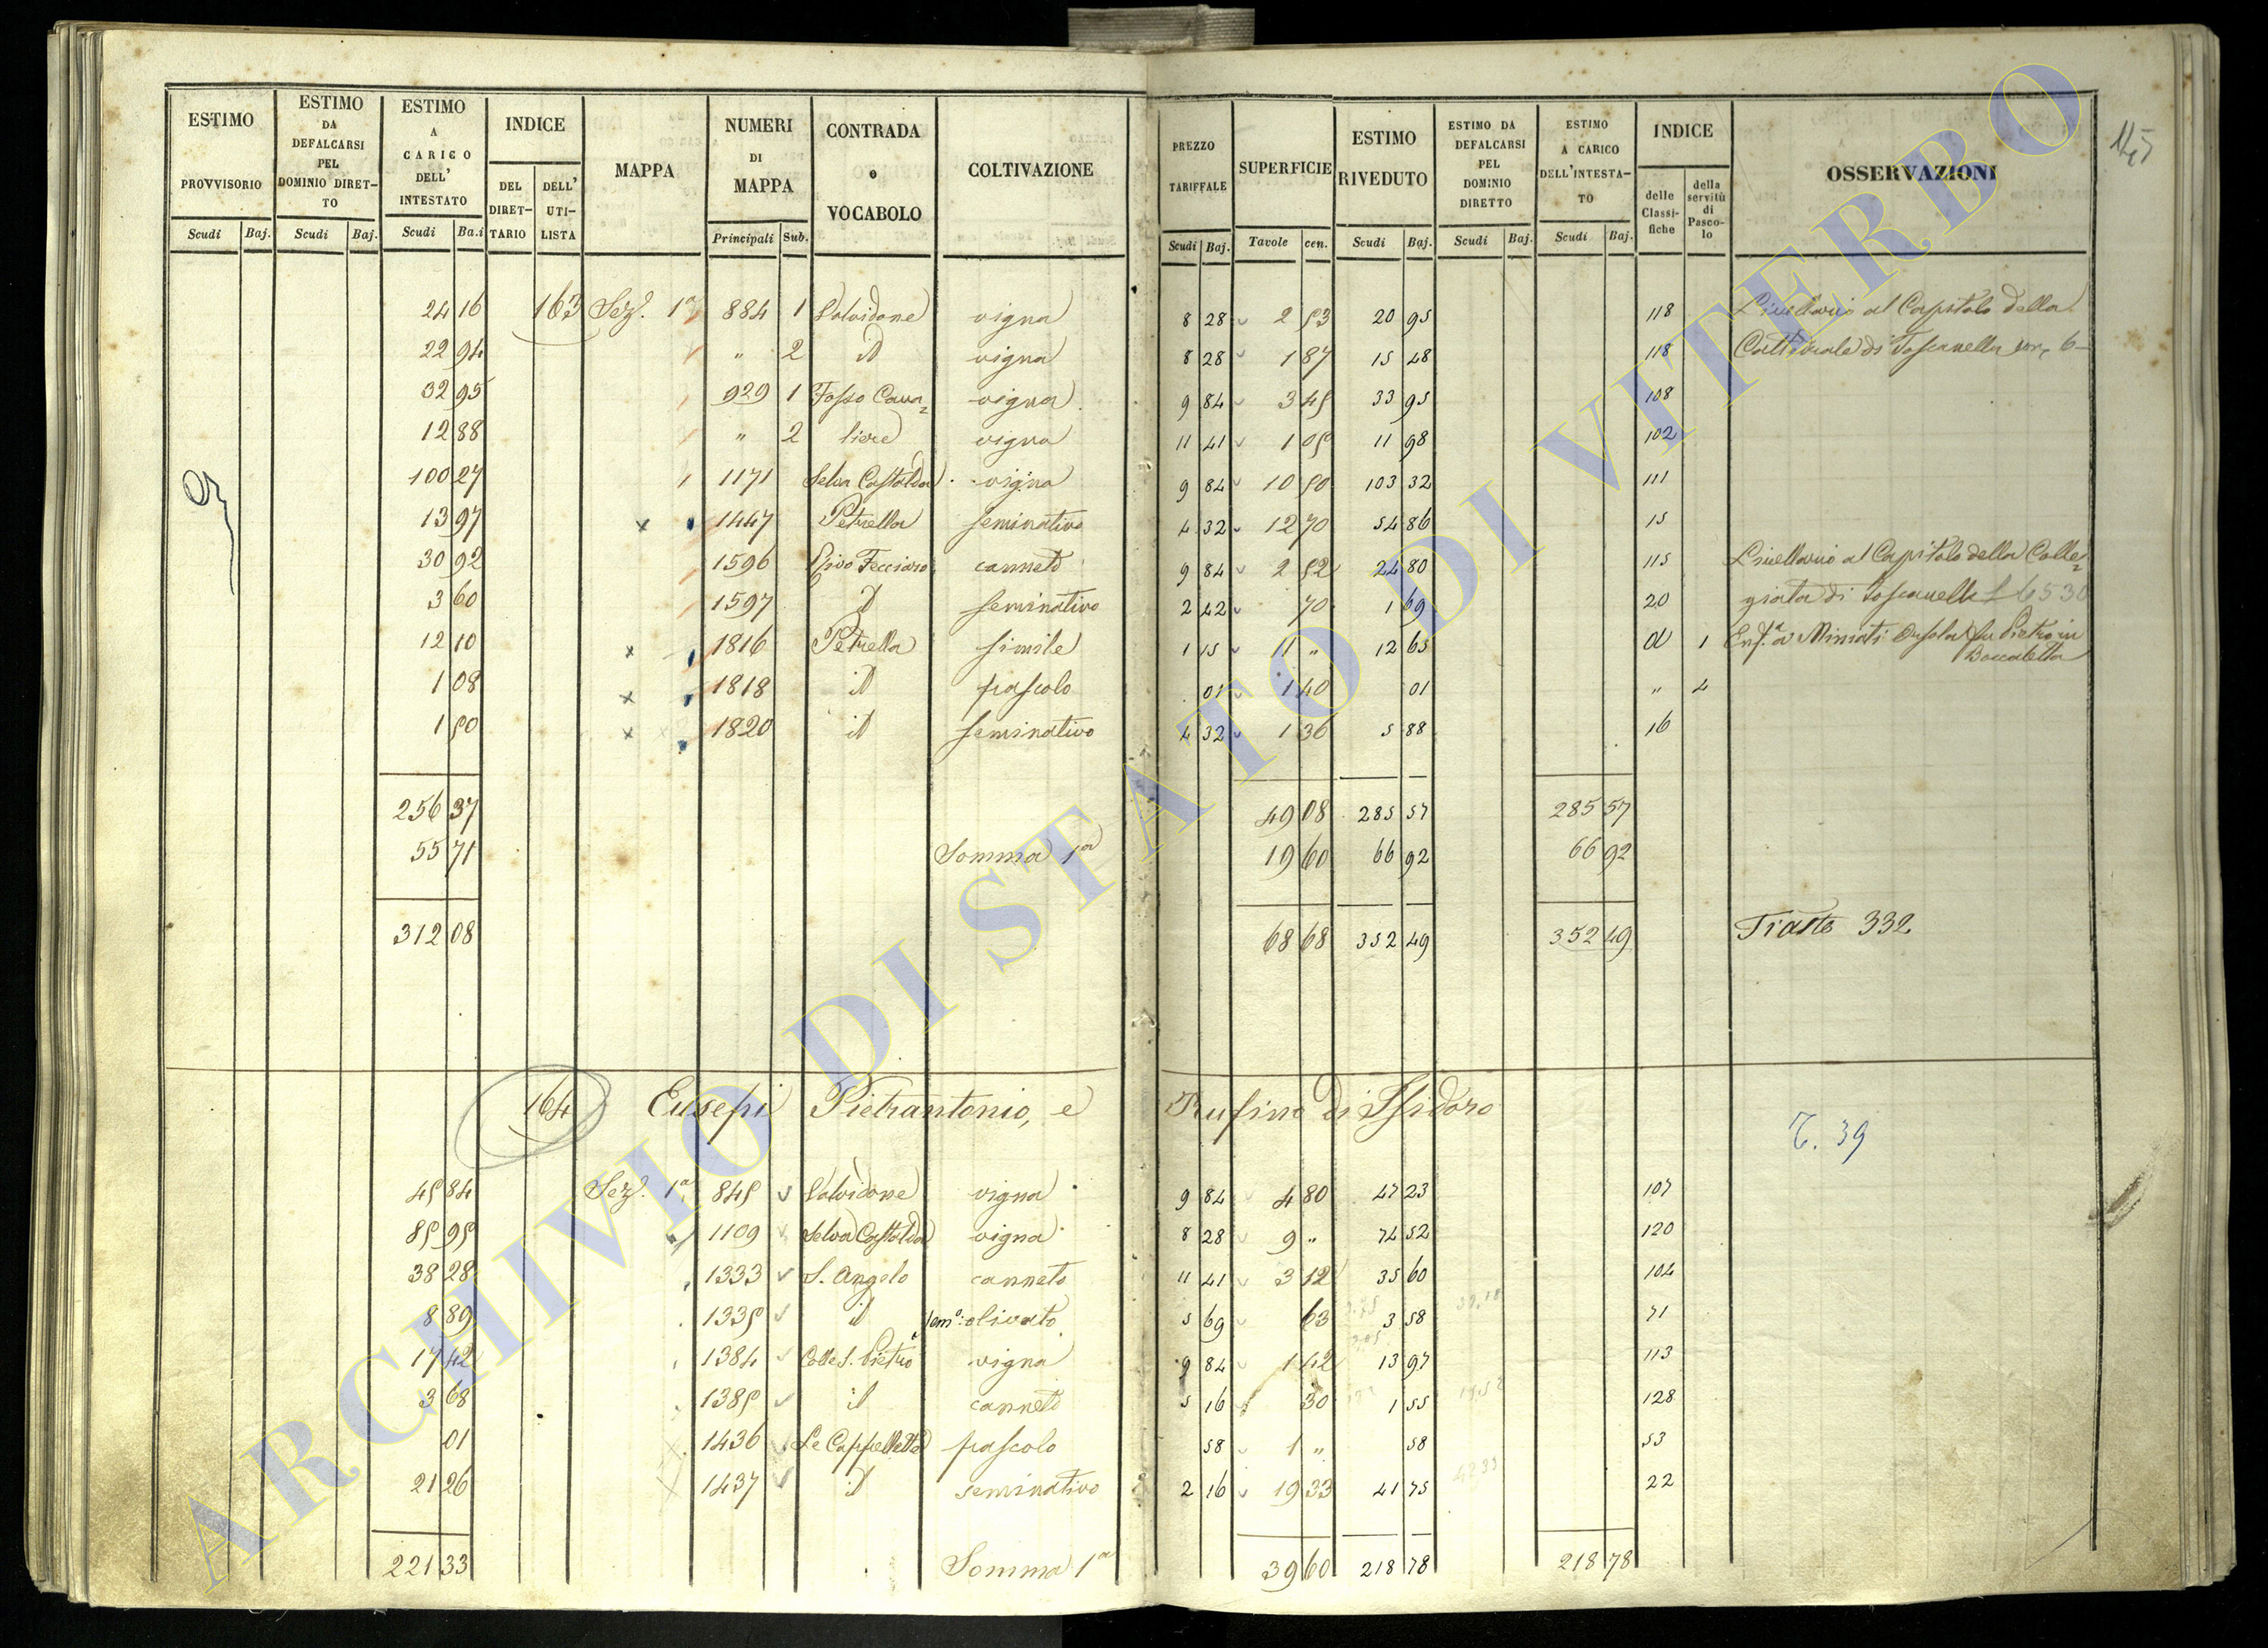 145
ESTIMO PROVVISORIO Scudi Baj.
ESTIMO DA DEFALCARSI PEL DOMINIO DIRETTO Scudi Baj.
ESTIMO A CARICO DELL' INTESTATO Scudi Ba.i
INDICE DEL DIRETTARIO DELL' UTILISTA
MAPPA
NUMERI DI MAPPA Principali Sub.
CONTRADA e VOCABOLO
COLTIVAZIONE
PREZZO TARIFFALE Scudi Baj.
SUPERFICIE Tavole cen.
ESTIMO RIVEDUTO Scudi Baj.
ESTIMO DA DEFALCARSI PEL DOMINIO DIRETTO Scudi Baj.
ESTIMO A CARICO DELL'INTESTATO Scudi Baj.
INDICE delle Classifiche della servitù di Pascolo
OSSERVAZIONI
24 16 163 Sez. 1a 884 1 Salvidone vigna 8 28 2 53 20 95 118 Livellario al Capitolo della
22 94 " 2 id vigna 8 28 1 87 15 48 118 Cattedrale di Toscanella
32 95 929 1 Fosso Cava= vigna 9 84 3 45 33 95 108
12 88 " 2 liere vigna 11 41 1 05 11 98 102
100 27 1171 Selva Castalda vigna 9 84 10 50 103 32 111
13 97 x 1447 Petrella seminativo 4 32 12 70 54 86 15
30 92 1596 Rivo Fecciaro canneto 9 84 2 52 24 80 115 Livellario al Capitolo della Colle=
3 60 1597 id seminativo 2 42 70 1 69 20 giata di Toscanella £ 65 30
12 10 x 1816 Petrella simile 1 15 11 " 12 65 a 1 Enf.a a Miniati Orsola fu Pietro in
Boccaletta
1 08 x 1818 id pascolo 01 1 40 01 " 4
1 50 x 1820 id seminativo 4 32 1 36 5 88 16
256 37 49 08 285 57 285 57
55 71 Somma 1a 19 60 66 92 66 92
312 08 68 68 352 49 352 49 Tiasto 332
164 Eusepi Pietrantonio, e Rufino di Isidoro
T. 39
45 84 Sez. 1a 845 Salvidone vigna 9 84 4 80 47 23 107
85 95 1109 Selva Castalda vigna 8 28 9 " 74 52 120
38 28 1333 S. Angelo canneto 11 41 3 12 35 60 104
8 89 1335 id sem.o olivato 5 69 63 3 58 71
17 42 1384 Colle S. Pietro vigna 9 84 1 42 13 97 113
3 68 1385 id canneto 5 16 30 1 55 128
01 1436 Le Cappellette pascolo 58 1 " 58 53
21 26 1437 id seminativo 2 16 19 33 41 75 22
221 33 Somma 1a 39 60 218 78 218 78
ARCHIVIO DI STATO DI VITERBO